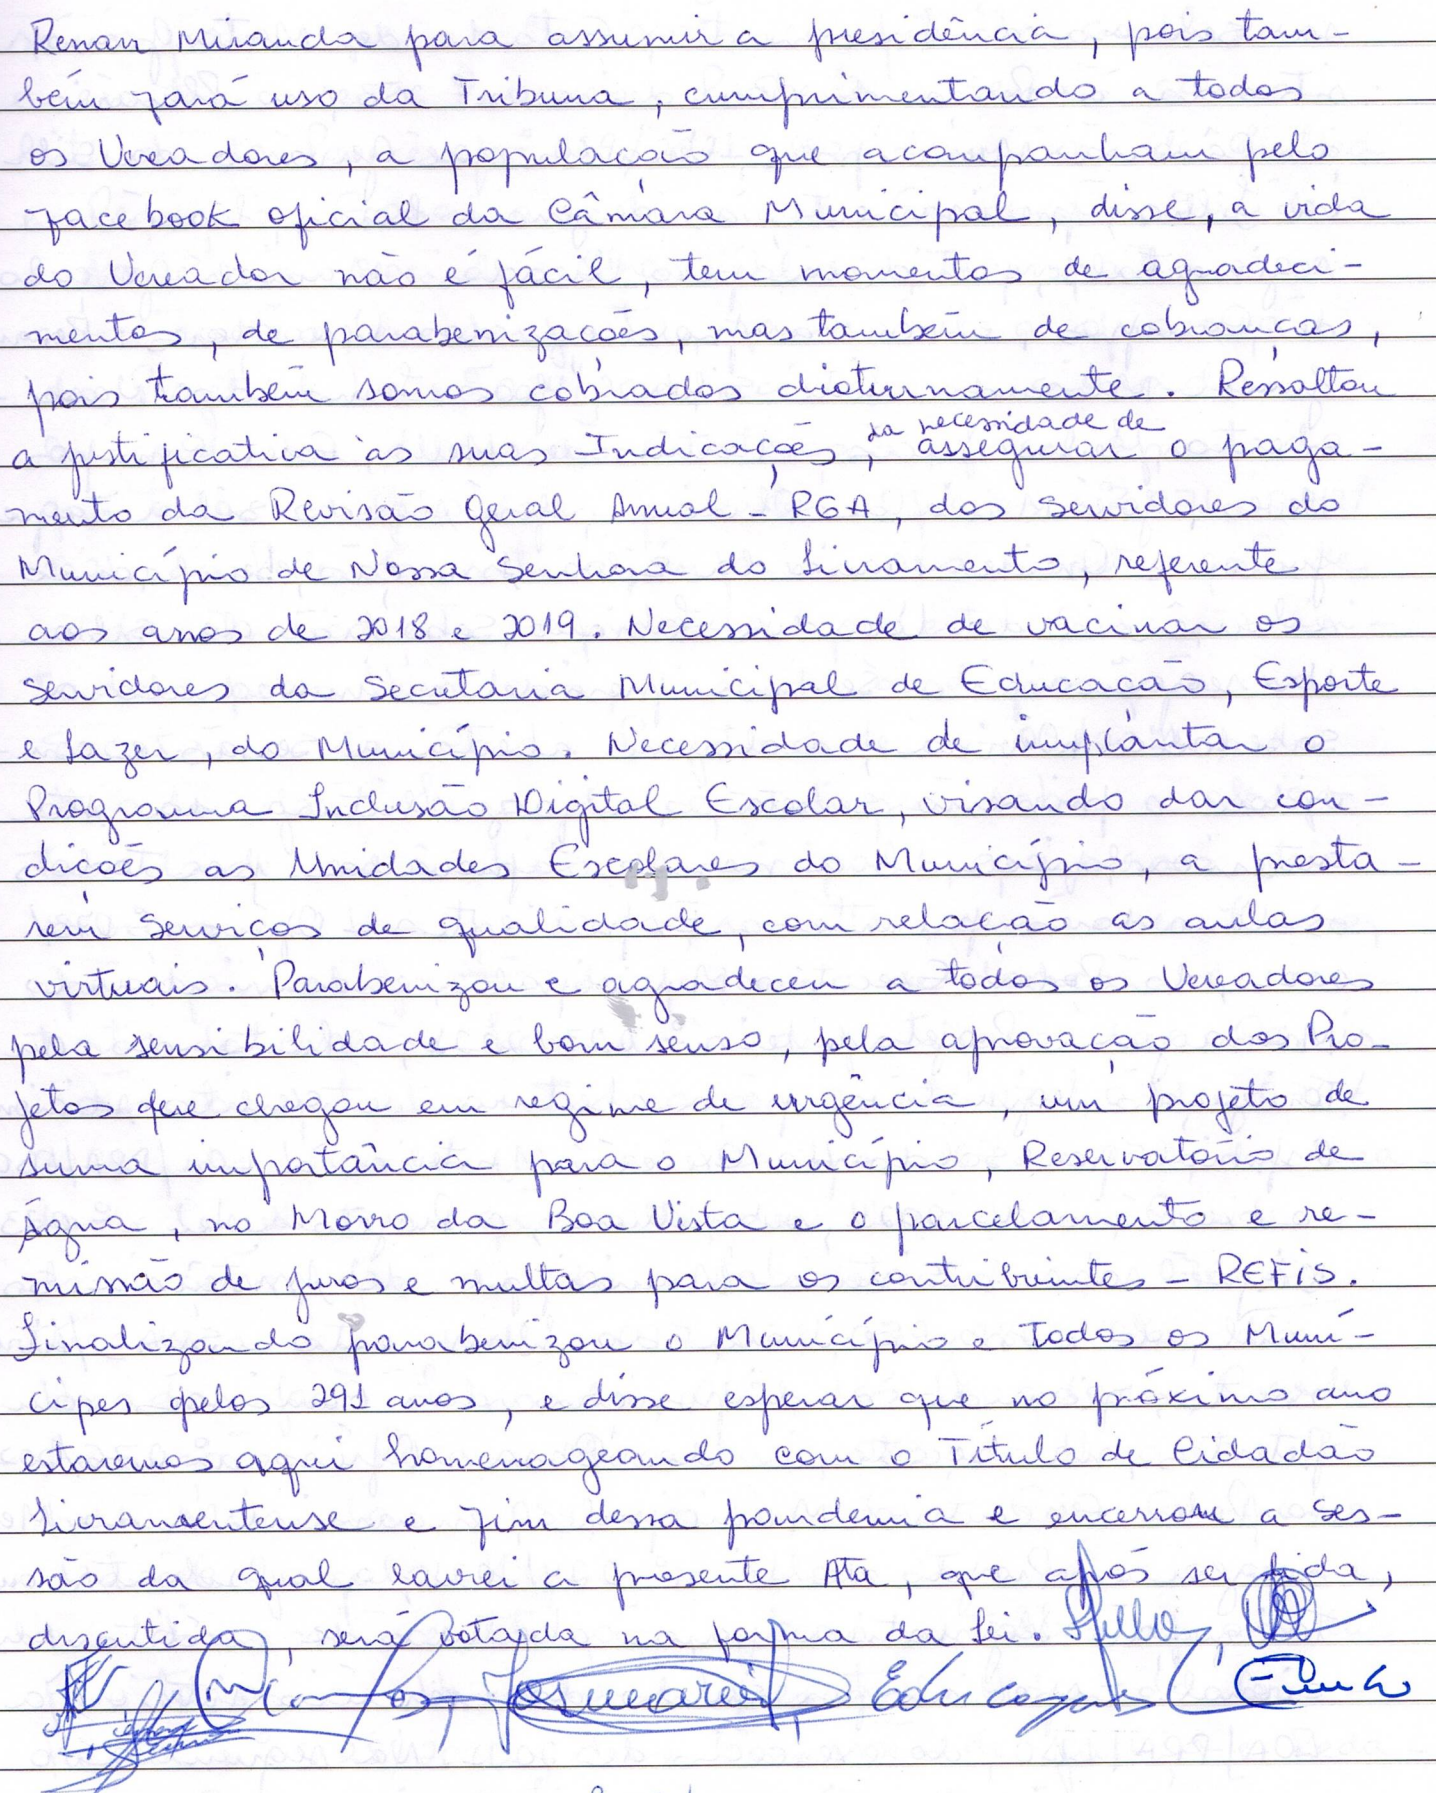 Renan Miranda para assumir a presidência, pois tam-
bém fará uso da Tribuna, cumprimentando a todos
os Vereadores, a população que acompanham pelo
facebook oficial da Câmara Municipal, disse, a vida
do Vereador não é fácil, tem momentos de agradeci-
mentos, de parabenizações, mas também de cobranças,
pois também somos cobrados dioturnamente. Ressaltou
da necessidade de
a justificativa às suas Indicações, assegurar o paga-
mento da Revisão Geral Anual - RGA, dos Servidores do
Município de Nossa Senhora do Livramento, referente
aos anos de 2018 e 2019. Necessidade de vacinar os
Servidores da Secretaria Municipal de Educação, Esporte
e Lazer, do Município. Necessidade de implantar o
Programa Inclusão Digital Escolar, visando dar con-
dições as Unidades Escolares do Município, a presta-
rem Serviços de qualidade, com relação as aulas
virtuais. Parabenizou e agradeceu a todos os Vereadores
pela sensibilidade e bom senso, pela aprovação dos Pro-
jetos que chegou em regime de urgência, um projeto de
suma importância para o Município, Reservatório de
Água, no Morro da Boa Vista e o parcelamento e re-
missão de juros e multas para os contribuintes - REFIS.
Finalizando parabenizou o Município e Todos os Muní-
cipes pelos 291 anos, e disse esperar que no próximo ano
estaremos aqui homenageando com o Título de Cidadão
Livramentense e fim dessa pandemia e encerrou a Ses-
são da qual lavrei a presente Ata, que após ser lida,
discutida, será votada na forma da Lei.